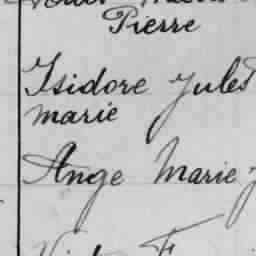 Pierre
Isidore Jules
marie
Ange Marie